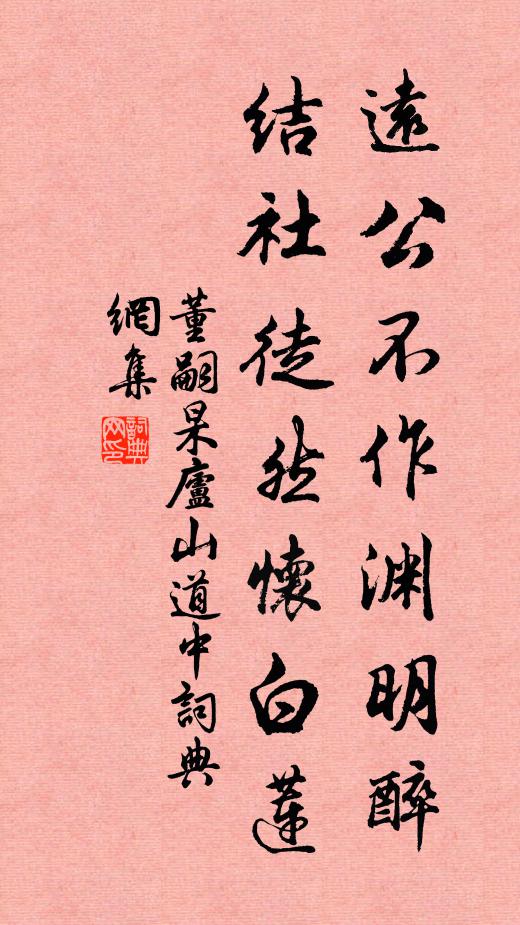 遠公不作渊明醉
结社徒然懷白蓮
董嗣杲廬山道中詞典
網集
詞典網印